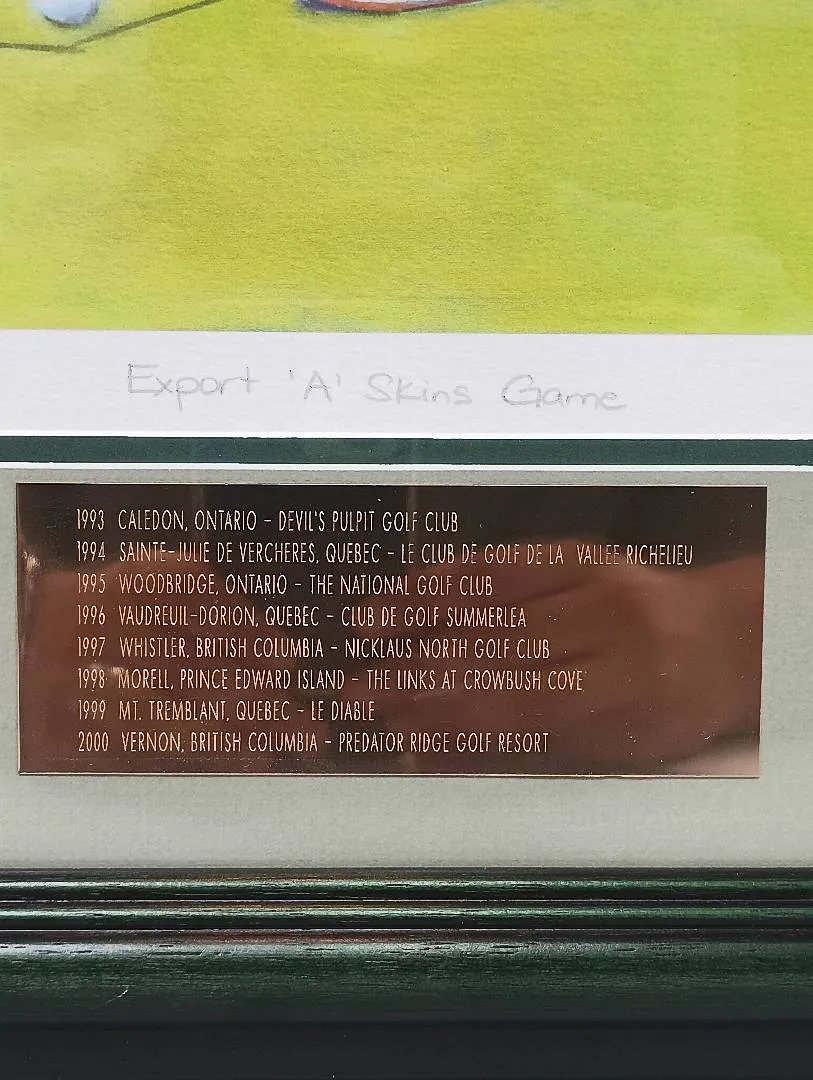 Export 'A' Skins Game
1993 CALEDON, ONTARIO - DEVIL'S PULPIT GOLF CLUB
1994 SAINTE-JULIE DE VERCHERES, QUEBEC - LE CLUB DE GOLF DE LA VALLEE RICHELIEU
1995 WOODBRIDGE, ONTARIO - THE NATIONAL GOLF CLUB
1996 VAUDREUIL-DORION, QUEBEC - CLUB DE GOLF SUMMERLEA
1997 WHISTLER, BRITISH COLUMBIA - NICKLAUS NORTH GOLF CLUB
1998 MORELL, PRINCE EDWARD ISLAND - THE LINKS AT CROWBUSH COVE
1999 MT. TREMBLANT, QUEBEC - LE DIABLE
2000 VERNON, BRITISH COLUMBIA - PREDATOR RIDGE GOLF RESORT